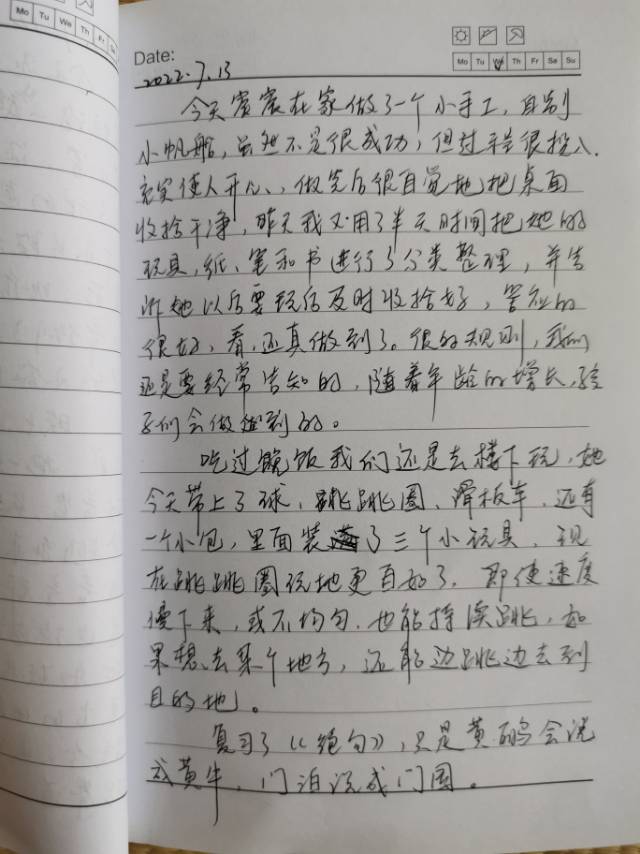 Mo Tu We Th Fr Sa
Date:
Mo Tu We Th Fr Sa Su
2022.7.13
今天宸宸在家做了一个小手工,自制
小帆船,虽然不是很成功,但过程很投入.
充实使人开心、做完后很自觉地把桌面
收拾干净,昨天我又用了半天时间把她的
玩具,纸、笔和书进行了分类整理,并告
诉她以后要玩后及时收拾好,答应的
很好,看,还真做到了。很的规则,我们
还是要经常告知的,随着年龄的增长,孩
子们会做到的。
吃过晚饭我们还是去楼下玩,她
今天带上了球、跳跳圈、滑板车、还有
一个小包,里面装了三个小玩具、现
在跳跳圈玩地更自如了,即使速度
慢下来,或不均匀,也能持续跳,如
果想去某个地方,还能边跳边去到
目的地。
复习了《绝句》,只是黄鹂会说
成黄牛,门泊说成门国。